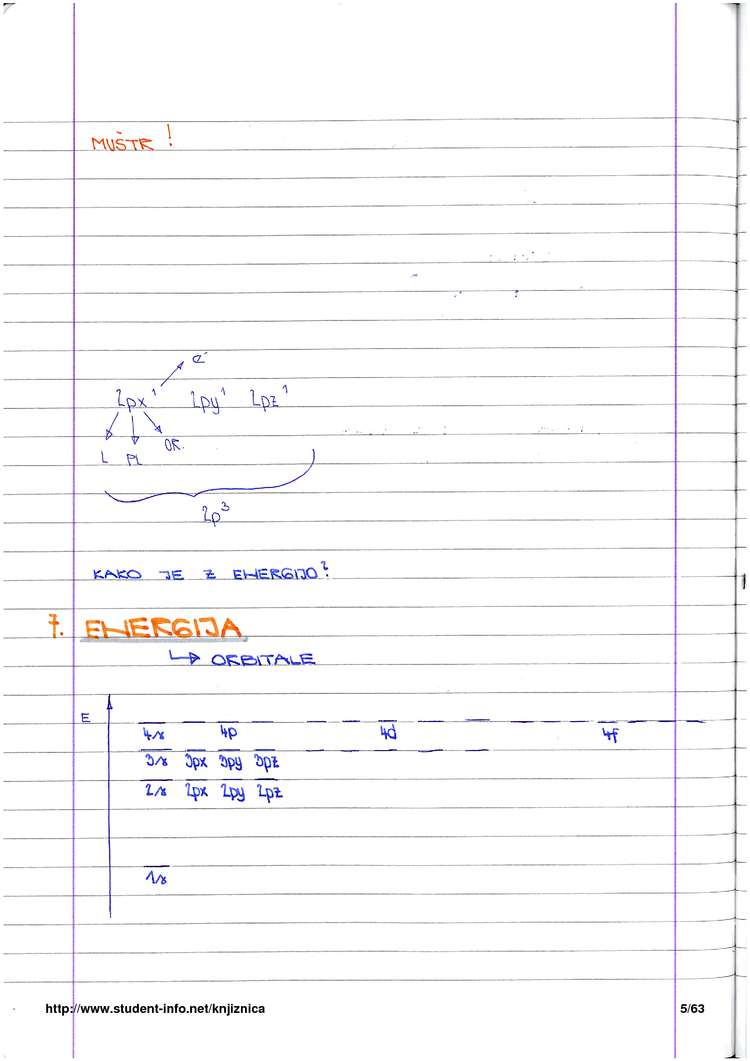 MUŠTR !
e⁻
2px¹ 2py¹ 2pz¹
OR.
L PL
2p³
KAKO JE Z ENERGIJO?
7. ENERGIJA
↳ ORBITALE
E
4s 4p 4d 4f
3s 3px 3py 3pz
2s 2px 2py 2pz
1s
http://www.student-info.net/knjiznica 5/63